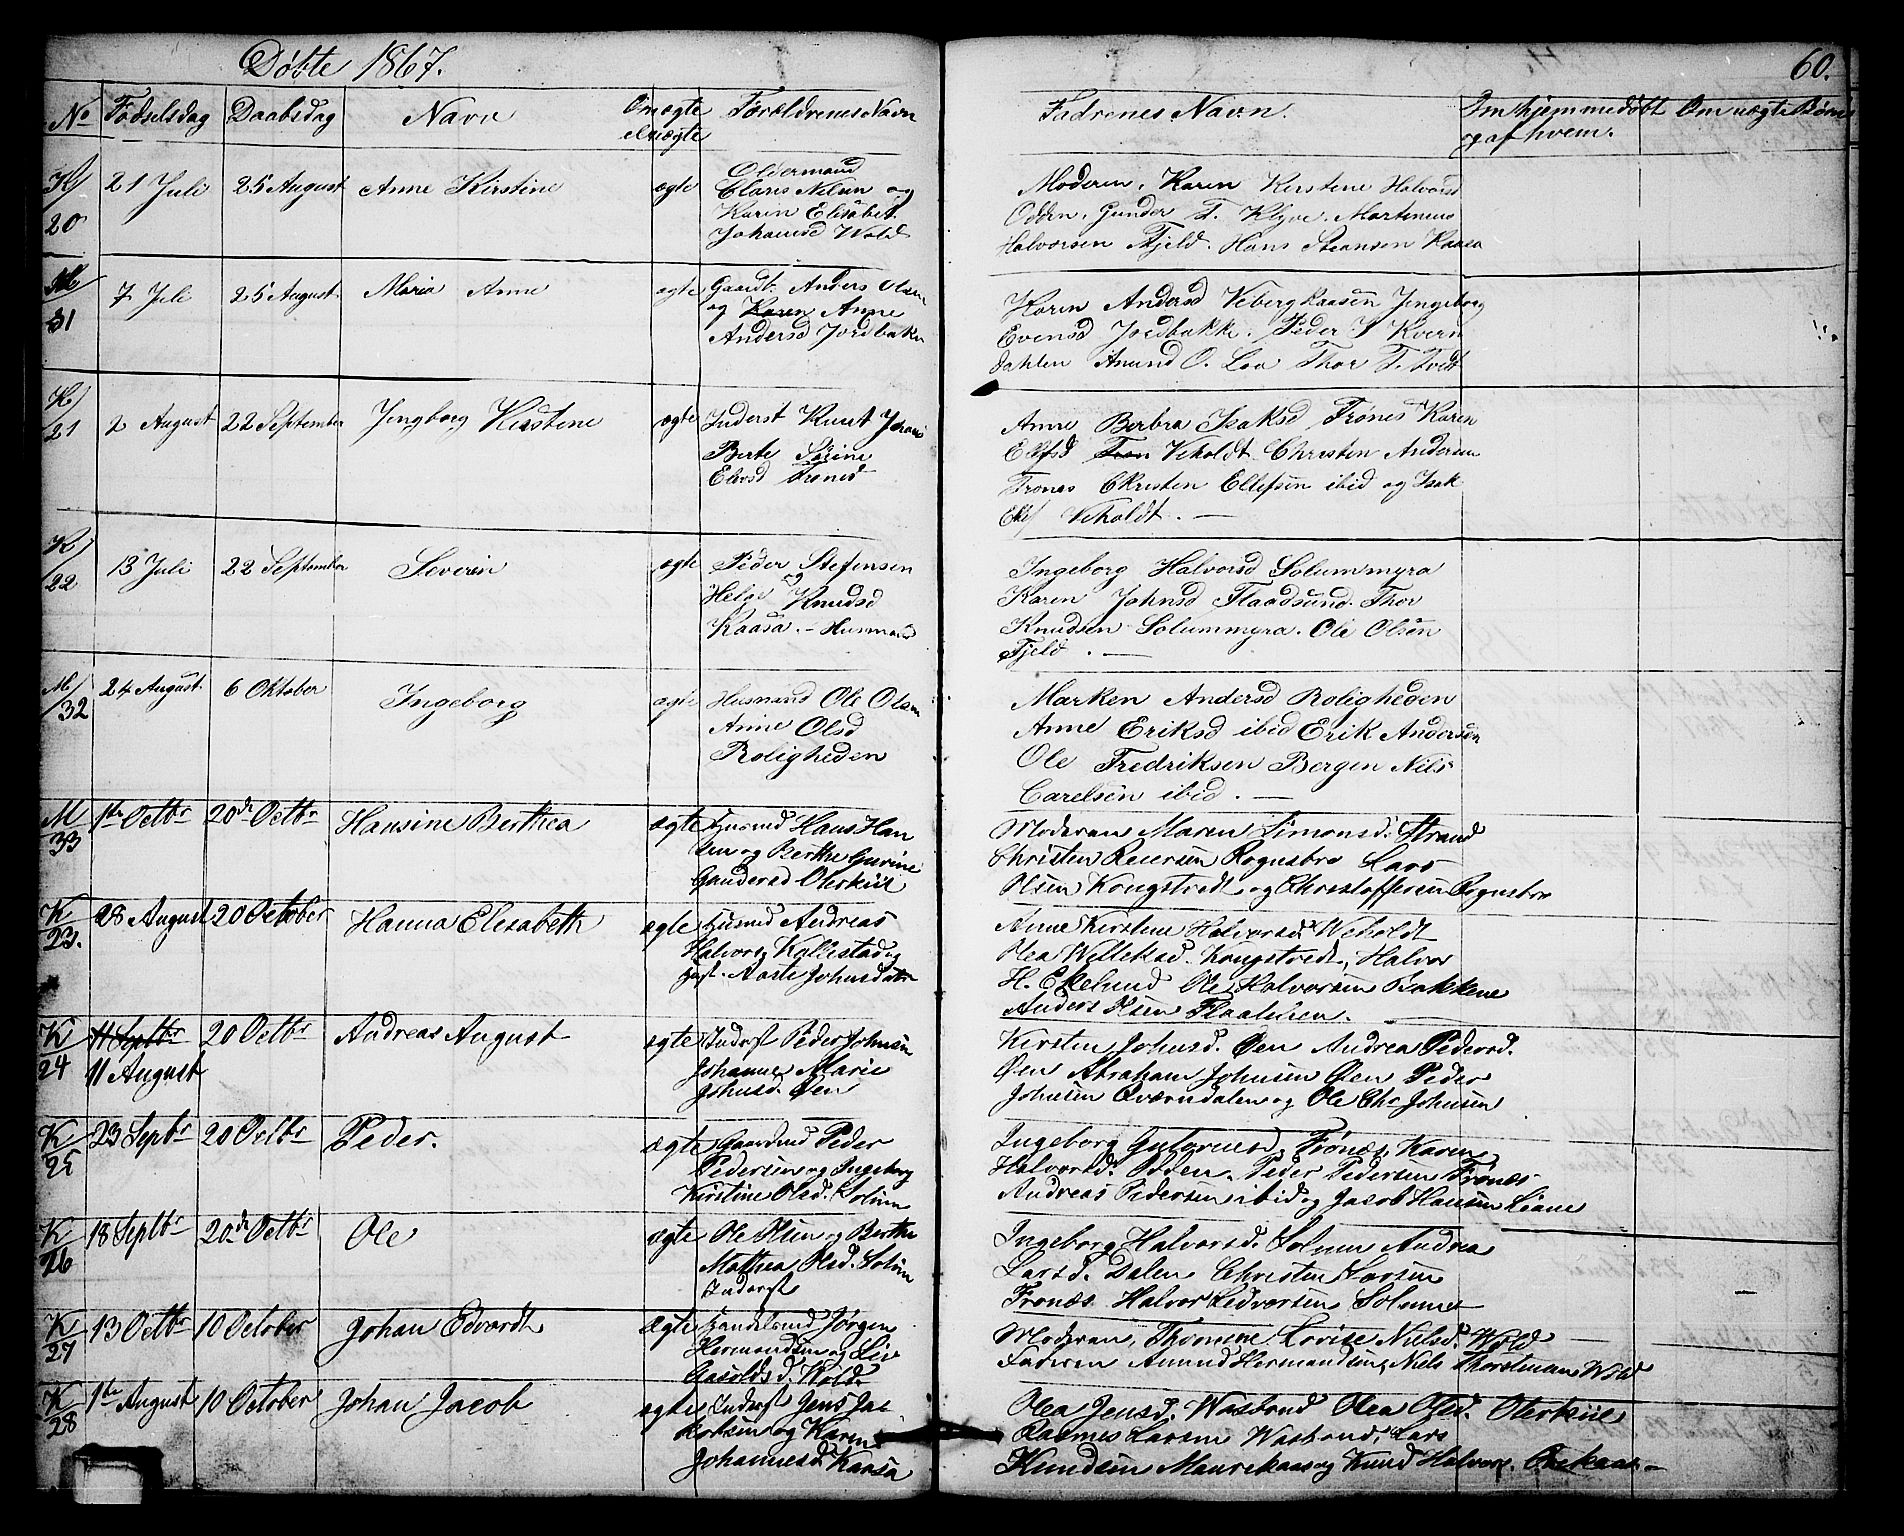 Døbte 1867.
60.
No Fødselsdag Daabsdag Navn Om ægte el uægte Forældrenes Navn Fadrenes Navn. Om hjemmedøbt og af hvem. Om uægte Børn
K/20 21 Juli 25 August Anne Kirstine ægte
Oldermand
Claus Nilsen og
Karin Elisabet
Johannsd Wold
Moderen, Karen Kirstene Halvorsd
Odden, Gunder T. Klyve. Martinius
Halvorsen Fjeld. Hans Steansen Kaasa
M/31 7 Juli 25 August Maria Anne ægte
Gaardb. Anders Olsen
og Karen Anne
Andersd Jordbakn
Karen Andersd Vebergkaasen Jngeborg
Evensd Jordbakk. Peder S Kvern
dahlen Amund O. Loa Thor T. Tvedt
K/21 2 August 22 September Jngborg Kirstene ægte
Inderst Knut Johan
Berte Sørine
Elevsd Trones
Anne Berbra Isaksd Frones Karen
Elefsd Veholdt Christen Andersen
Frones Christen Ellefsen ibid og Isak
Elefs Veholdt. —
K/22 13 Juli 22 September Severin ægte
Peder Stefensen
og
Helge Knudsd
Kaasa. - Husmand
Ingeborg Halvorsd Solummyra
Karen Johnsd Flaadsund. Thor
Knudsen Solummyra. Ole Olsen
Fjeld. —
M/32 24 August 6 Oktober Ingeborg ægte
Husmand Ole Olsen
Anne Olsd
Roligheden
Marken Andersd Roligheden
Anne Eriksd ibid Erik Andersen
Ole Fredriksen Bergen Nils
Carelsen ibid. —
M/33 1ste Octbr 20de Octbr Hansine Berthea ægte
Husmd Hans Han
sen og Berthe Gurine
Gundersd Oterkiil
Moderen Maren Simonsd. Strand
Christen Reiersen Rognsbro Lars
Olsen Kongstvedt og Christoffersen Rognsbro
K/23. 28 August 20 October Hanna Elesabeth ægte
Husmd Andreas
Halvors Kollestad og
Aaste Johnsdatter
Anne Kirstine Halvorsd. Weholdt
Olea Kongstvedt, Halvor
H. Eklund Ole Halvorsen Bakkene
Anders Olsen Flaatenen. —
K/24 11 Septbr 20 Octbr Andreas August ægte
11 August
Inderst Peder Johnsen
Johanne Marie
Johnsd. Øen
Kirsten Johnsd. Øen Andrea Pedersd.
Øen Abraham Johnsen Øen Peder
Johnsen Qværndalen og Ole Chr Johnsen
K/25 23 Septbr 20 Octbr Peder. ægte
Gaardmd Peder
Pedersen og Ingeborg
Kirstine Olsd. Solum
Ingeborg Frønæs, Karen
Halvorsd. Odden, Peder Pedersen Frønæs
Andreas Pedersen ibid og Jacob Hansen Liane
K/26 18 Septbr 20de Octbr Ole ægte
Ole Olsen og Berthe
Mathea Olsd. Solum
Inderst
Ingeborg Halvorsd. Solum Andrea
Larsd. Dalen Christen Larsen
Fronæs Halvor Ledvorsen Solum
K/27 13 Octbr 10 October Johan Edvardt Ægte
Handelsmd Jørgen
Hermandsen og Lise
Wold.
Moderen, Thomine Lovise Nielsd. Wold
Faderen Amund Hermandsen, Niels Thorstensen Wold
K/28 1ste August 10 October Johan Jacob ægte
Inderst Jens Jac
kobsen og Karen
Johannesd Kaasa
Olea Jensd. Wasbond Olea Olsd. Oterkiil
Rasmus Larsen Wasbond Lars
Knudsen Maurekaas og Knud Halvors. Oxekaas —